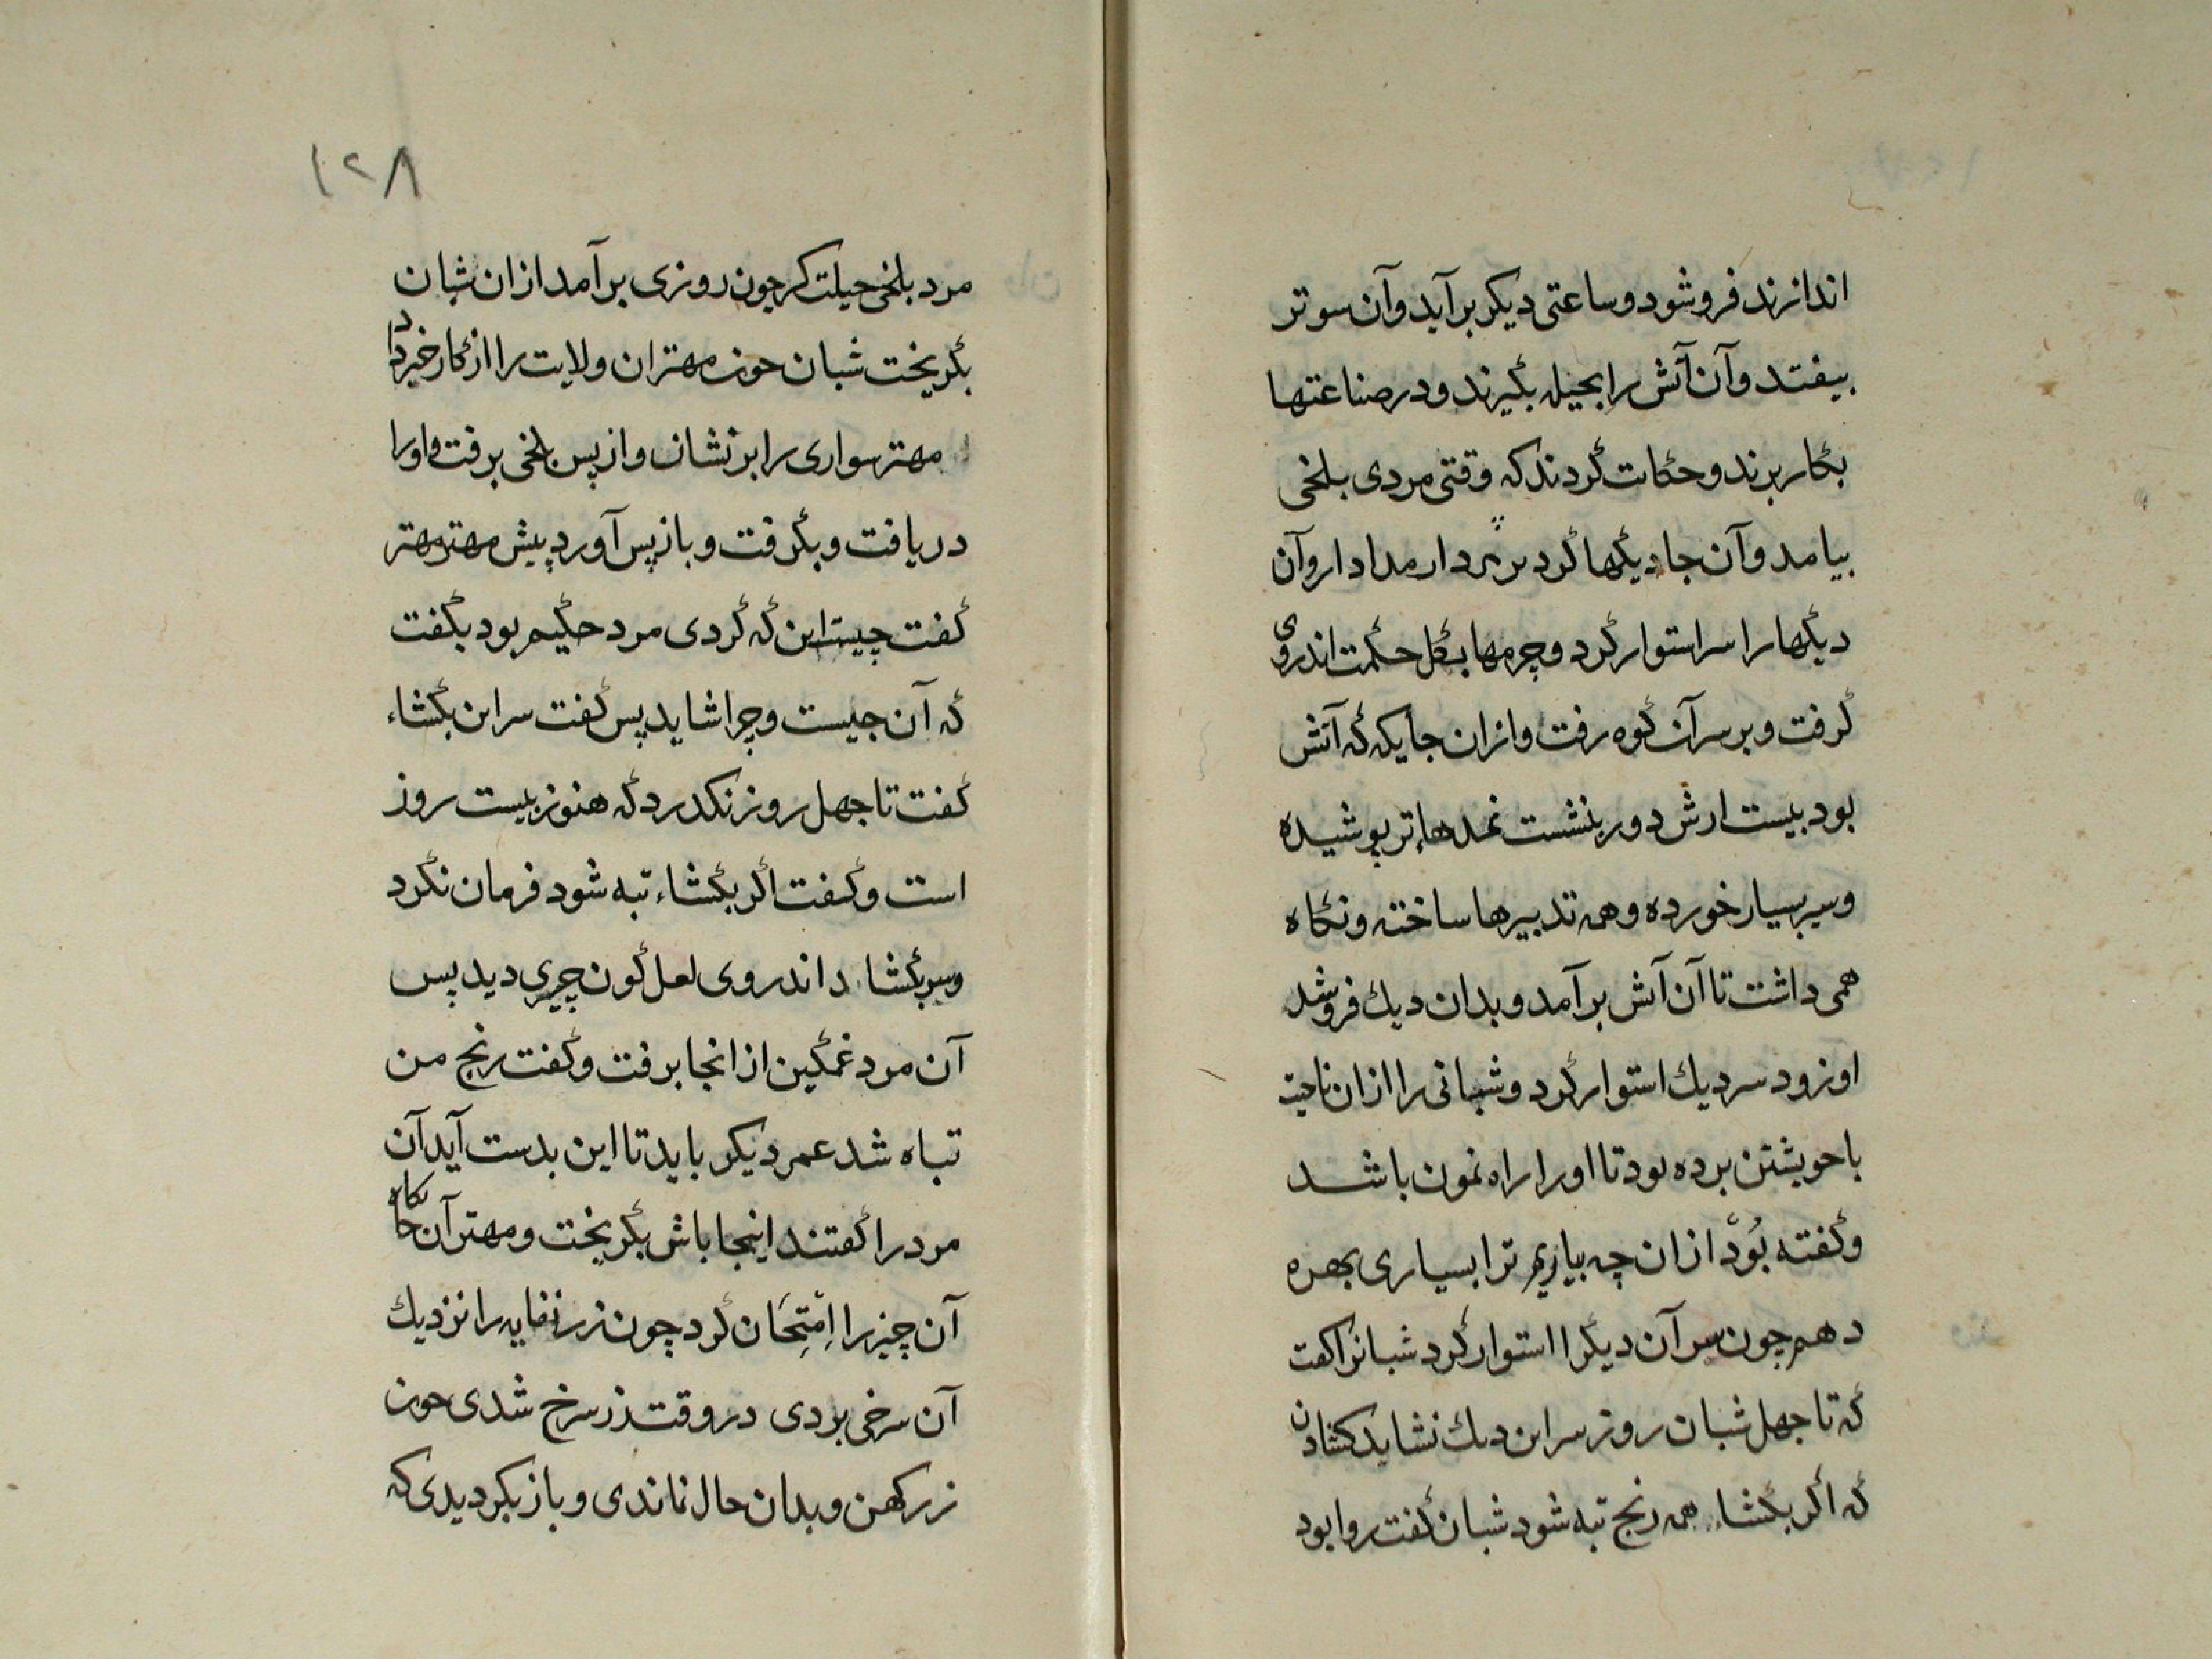 اندازند فروشود و ساعتی دیکر برآید و آن سوتر
بیفتد و آن آتش را بحیله بگیرند و در صناعتها
بکار برند و حکات کردند که وقتی مردی بلخی
بیامد و آن جا دیکها کرد بر پردار مدادار و آن
دیکها را سر استوار کرد و چرمها بگل حکمت اندروی
کرفت و بر سر آن کوه رفت و ازان جایکه که آتش
بود بیست ارش دور بنشست نمدهاء تر پوشیده
و سیر بسیار خورده و همه تدبیرها ساخته و نکاه
همی داشت تا آن آتش برآمد و بدان دیك فروشد
او زود سر دیك استوار کرد و شبانی را ازان ناحیت
با خویشتن برده بود تا او را راه نمون باشد
و کفته بود ازان چه بیاریم ترا بسیاری بهره
دهم چون سر آن دیکرا استوار کرد شبانرا کفت
که تا چهل شبان روز سر این دیك نشاید کشادن
که اکر بکشاء همه رنج تبه شود شبان کفت روا بود
۱۲۸
مرد بلخی حیلت کر چون روزی برآمد ازان شبان
بکریخت شبان چون مهتران ولایت را از کار خبر داد
مهتر سواری را برنشاند و از پس بلخی برفت و او را
دریافت و بکرفت و باز پس آورد پیش مهتر مهتر
کفت چیست این که کردی مرد حکیم بود بکفت
که آن چیست و چرا شاید پس کفت سر این بکشاء
کفت تا چهل روز نکدرد که هنوز بیست روز
است و کفت اکر بکشاء تبه شود فرمان نکرد
و سر بکشاد اندروی لعل کون چیزی دید پس
آن مرد غمکین از انجا برفت و کفت رنج من
تباه شد عمر دیکر باید تا این بدست آید آن
مرد را کفتند اینجا باش بکریخت و مهتر آن جایکاه
آن چیز را اِمْتِحَان کرد چون زر نفایه را نزدیك
آن سرخی بردی در وقت زر سرخ شدی چون
زر کهن و بدان حال نماندی و باز بکردیدی که